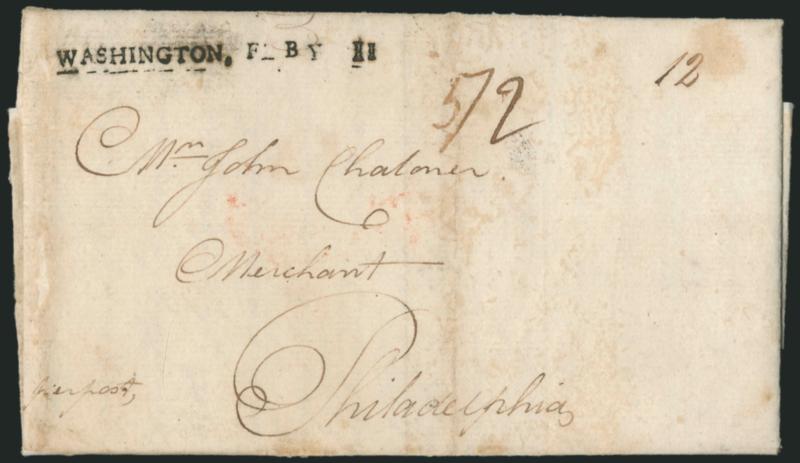 WASHINGTON. F_BY II
5/2
12
Mr. John Chaloner.
Merchant
Philadelphia,